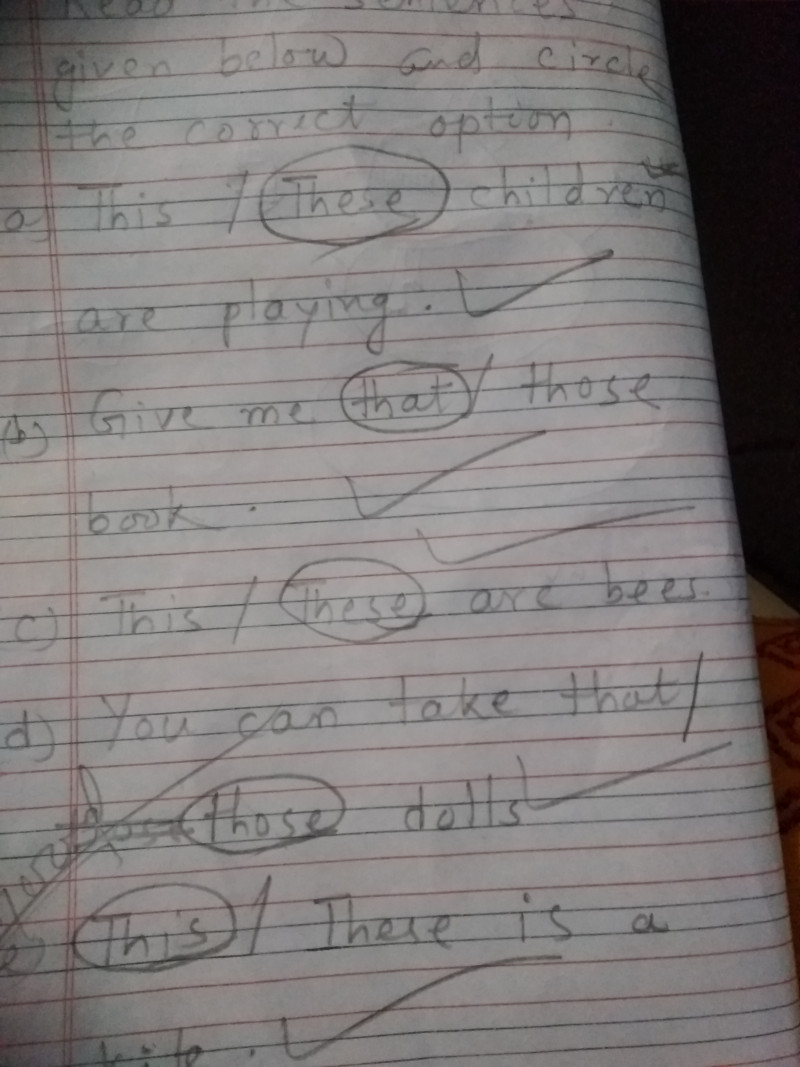 Read the sentences
given below and circle
the correct option.
a) This / These children
are playing.
(b) Give me that / those
book.
c) This / These are bees.
d) You can take that /
those dolls
e) This / These is a
kite.